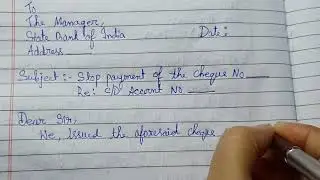 To
The Manager,
State Bank of India Date:
Address
Subject:- Stop payment of the Cheque No
Re: C/D Account No
Dear Sir,
We, Issued the aforesaid cheque